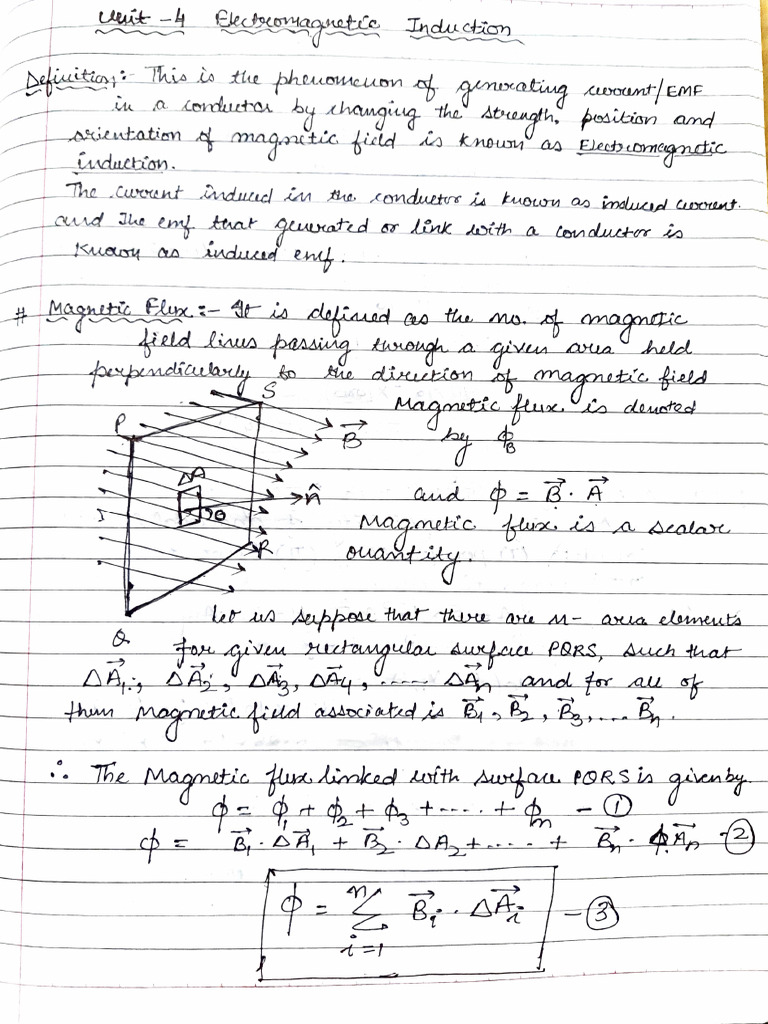 Unit - 4 Electromagnetic Induction
Definition :- This is the phenomenon of generating current/EMF
in a conductor by changing the strength, position and
orientation of magnetic field is known as Electromagnetic
induction.
The current induced in the conductor is known as induced current.
and The emf that generated or link with a conductor is
known as induced emf.
# Magnetic Flux :- It is defined as the no. of magnetic
field lines passing through a given area held
perpendicularly to the direction of magnetic field
S
Magnetic flux is denoted
P
B⃗
by ϕ_B
ΔA
n̂
and ϕ = B⃗ · A⃗
θ
Magnetic flux is a scalar
R
quantity.
Q
Let us suppose that there are n- area elements
for given rectangular surface PQRS, such that
ΔA⃗₁, ΔA⃗₂, ΔA⃗₃, ΔA⃗₄, ..... ΔA⃗ₙ and for all of
them Magnetic field associated is B⃗₁, B⃗₂, B⃗₃, ... B⃗ₙ.
∴ The Magnetic flux linked with surface PQRS is given by.
ϕ = ϕ₁ + ϕ₂ + ϕ₃ + ..... + ϕₙ - ①
ϕ = B⃗₁ · ΔA⃗₁ + B⃗₂ · ΔA₂ + ..... + B⃗ₙ · ΔA⃗ₙ - ②
ϕ = Σⁿᵢ₌₁ B⃗ᵢ · ΔA⃗ᵢ - ③